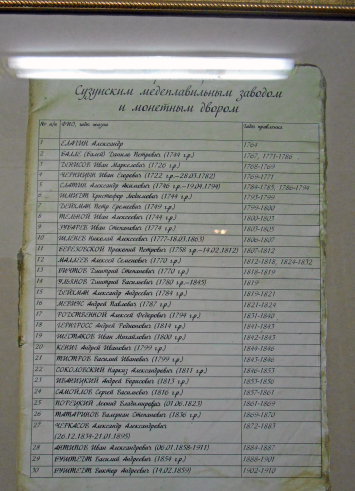 Сузунским медеплавильным заводом
и монетным двором
№ п/п ФИО, годы жизни Годы правления
1 ЕЛАГИН Александр 1764
2 Даниил Петрович (1744 г.р.) 1767, 1771-1786
3 ДЕНИСОВ Иван (1726 г.р.) 1768-1769
4 ЧЕРНИЦЫН Иван (1722 г.р.-28.03.1782) 1769-1771
5 Александр Акимович (1746 г.р.-19.04.1794) 1784-1785, 1786-1794
6 Христофор 1795-1799
7 ДЕЙХМАН Петр Еремеевич (1749 г.р.) 1799-1800
8 Иван Алексеевич (1744 г.р.) 1800-1803
9 ЗУБАРЕВ Иван Степанович (1774 г.р.) 1803-1805
10 Николай Алексеевич (1777-18.03.1863) 1806-1807
11 БЕРЕЗОВСКИЙ Прокопий Петрович (1758 г.р.-14.02.1812) 1807-1812
12 Алексей Семенович (1770 г.р.) 1812-1818, 1824-1832
13 Дмитрий Степанович (1770 г.р.) 1818-1819
14 УЛЬЯНОВ Дмитрий Васильевич (1780 г.р.-1845) 1819
15 ДЕЙХМАН Александр Андреевич (1784 г.р.) 1819-1821
16 Андрей Павлович (1787 г.р.) 1821-1824
17 РОДСТВЕННОЙ Алексей Федорович (1794 г.р.) 1831-1840
18 ЧЕРНГРОСС Андрей Родионович (1814 г.р.) 1841-1843
19 ШЕСТАКОВ Иван Михайлович (1800 г.р.) 1842-1843
20 Андрей Иванович (1799 г.р.) 1844-1846
21 ПИСТРОВ Василий Иванович (1799 г.р.) 1845-1846
22 СОКОЛОВСКИЙ Александрович (1811 г.р.) 1846-1853
23 ИВАНИЦКИЙ Андрей Борисович (1813 г.р.) 1853-1856
24 САМОЙЛОВ Сергей Васильевич (1816 г.р.) 1857-1861
25 Леонид Владимирович (01.06.1823) 1861-1869
26 ТАТАРИНОВ Валериан Степанович (1836 г.р.) 1869-1870
27 ЧЕРКАСОВ Александр Александрович 1872-1883
(26.12.1834-21.01.1895)
28 АНТИПОВ Иван Александрович (06.01.1858-1911) 1884-1887
29 Василий Андреевич (1854 г.р.) 1888-1901
30 Виктор Андреевич (14.02.1859) 1902-1910